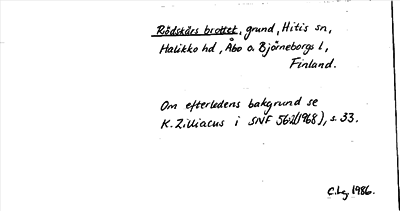 Rödskärs brottet, grund, Hitis sn,
Halikko hd, Åbo o. Björneborgs l,
Finland.
Om efterledens bakgrund se
K. Zilliacus i SNF 56 (1968), s. 33.
1986.